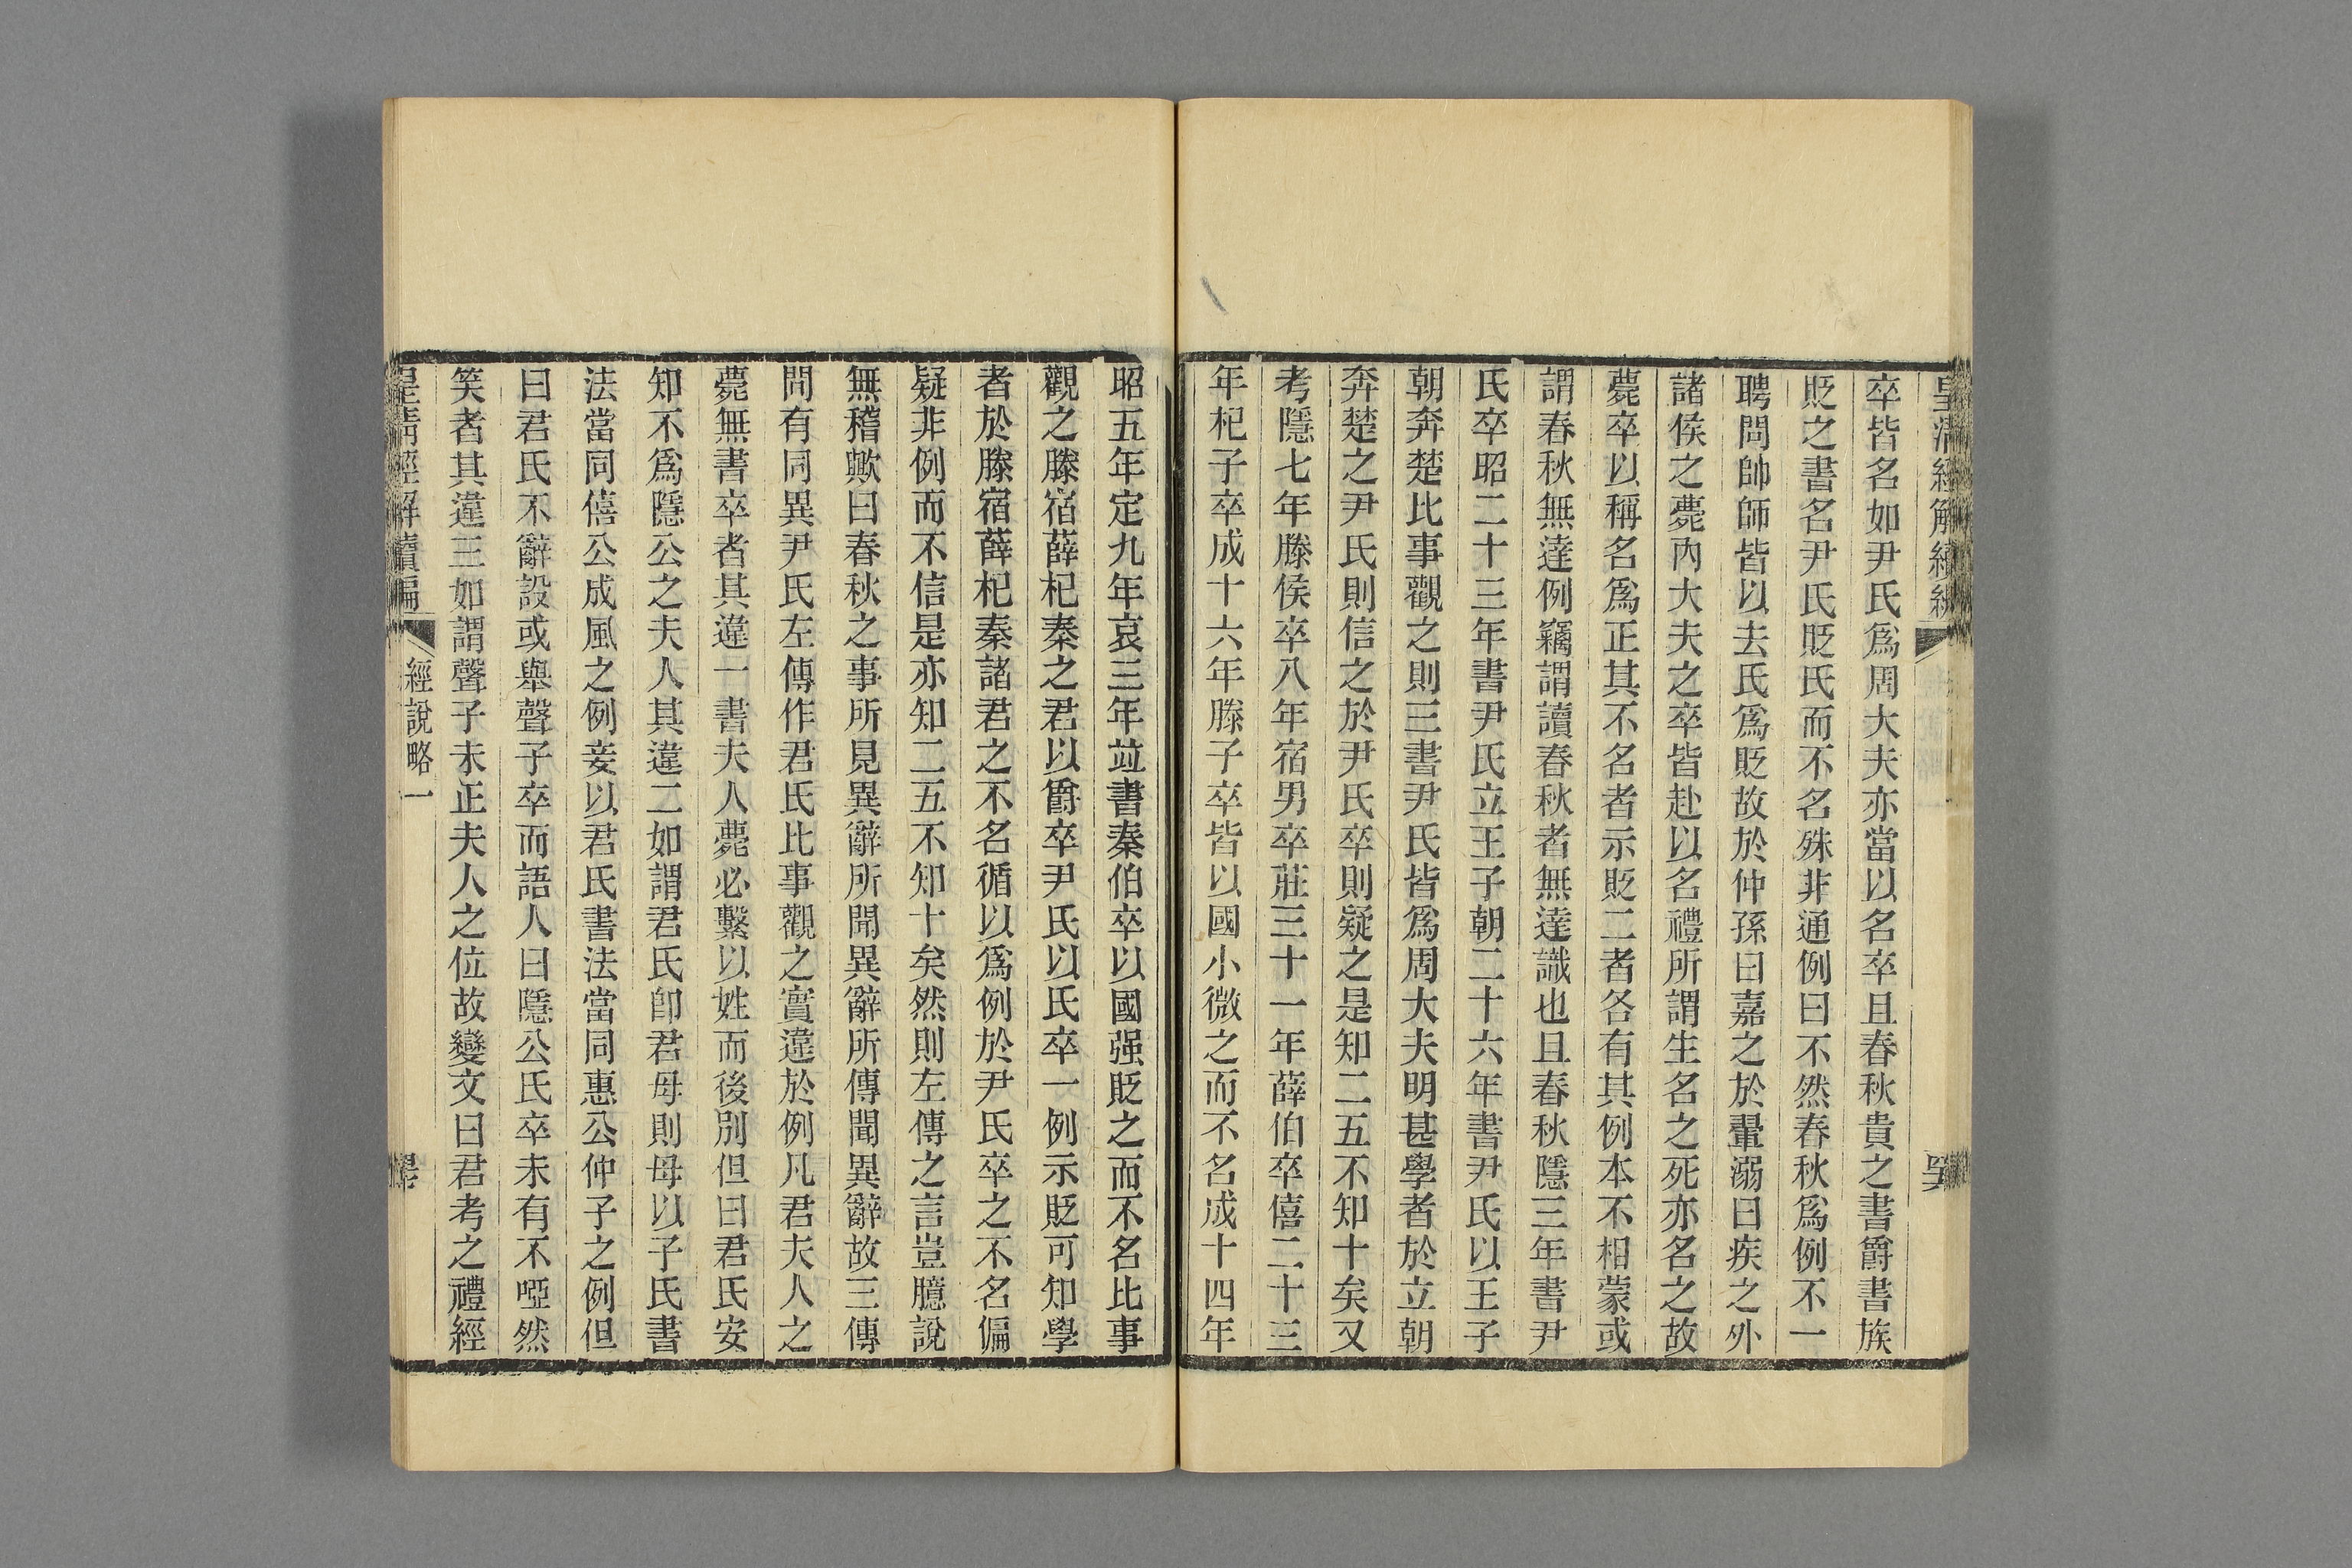 皇清經解續編
卒皆名如尹氏爲周大夫亦當以名卒且春秋貴之書爵書族
貶之書名尹氏貶氏而不名殊非通例曰不然春秋爲例不一
聘問帥師皆以去氏爲貶故於仲孫曰嘉之於翬溺曰疾之外
諸侯之薨內大夫之卒皆赴以名禮所謂生名之死亦名之故
薨卒以稱名爲正其不名者示貶二者各有其例本不相蒙或
謂春秋無達例竊謂讀春秋者無達識也且春秋隱三年書尹
氏卒昭二十三年書尹氏立王子朝二十六年書尹氏以王子
朝奔楚比事觀之則三書尹氏皆爲周大夫明甚學者於立朝
奔楚之尹氏則信之於尹氏卒則疑之是知二五不知十矣又
考隱七年滕侯卒八年宿男卒莊三十一年薛伯卒僖二十三
年杞子卒成十六年滕子卒皆以國小微之而不名成十四年
昭五年定九年哀三年竝書秦伯卒以國强貶之而不名比事
觀之滕宿薛杞秦之君以爵卒尹氏以氏卒一例示貶可知學
者於滕宿薛杞秦諸君之不名循以爲例於尹氏卒之不名偏
疑非例而不信是亦知二五不知十矣然則左傳之言豈臆說
無稽歟曰春秋之事所見異辭所聞異辭所傳聞異辭故三傳
問有同異尹氏左傳作君氏比事觀之實違於例凡君夫人之
薨無書卒者其違一書夫人薨必繫以姓而後別但曰君氏安
知不爲隱公之夫人其違二如謂君氏卽君母則母以子氏書
法當同僖公成風之例妾以君氏書法當同惠公仲子之例但
曰君氏不辭設或舉聲子卒而語人曰隱公氏卒未有不啞然
笑者其違三如謂聲子未正夫人之位故變文曰君考之禮經
皇淸經解續編
經說略一